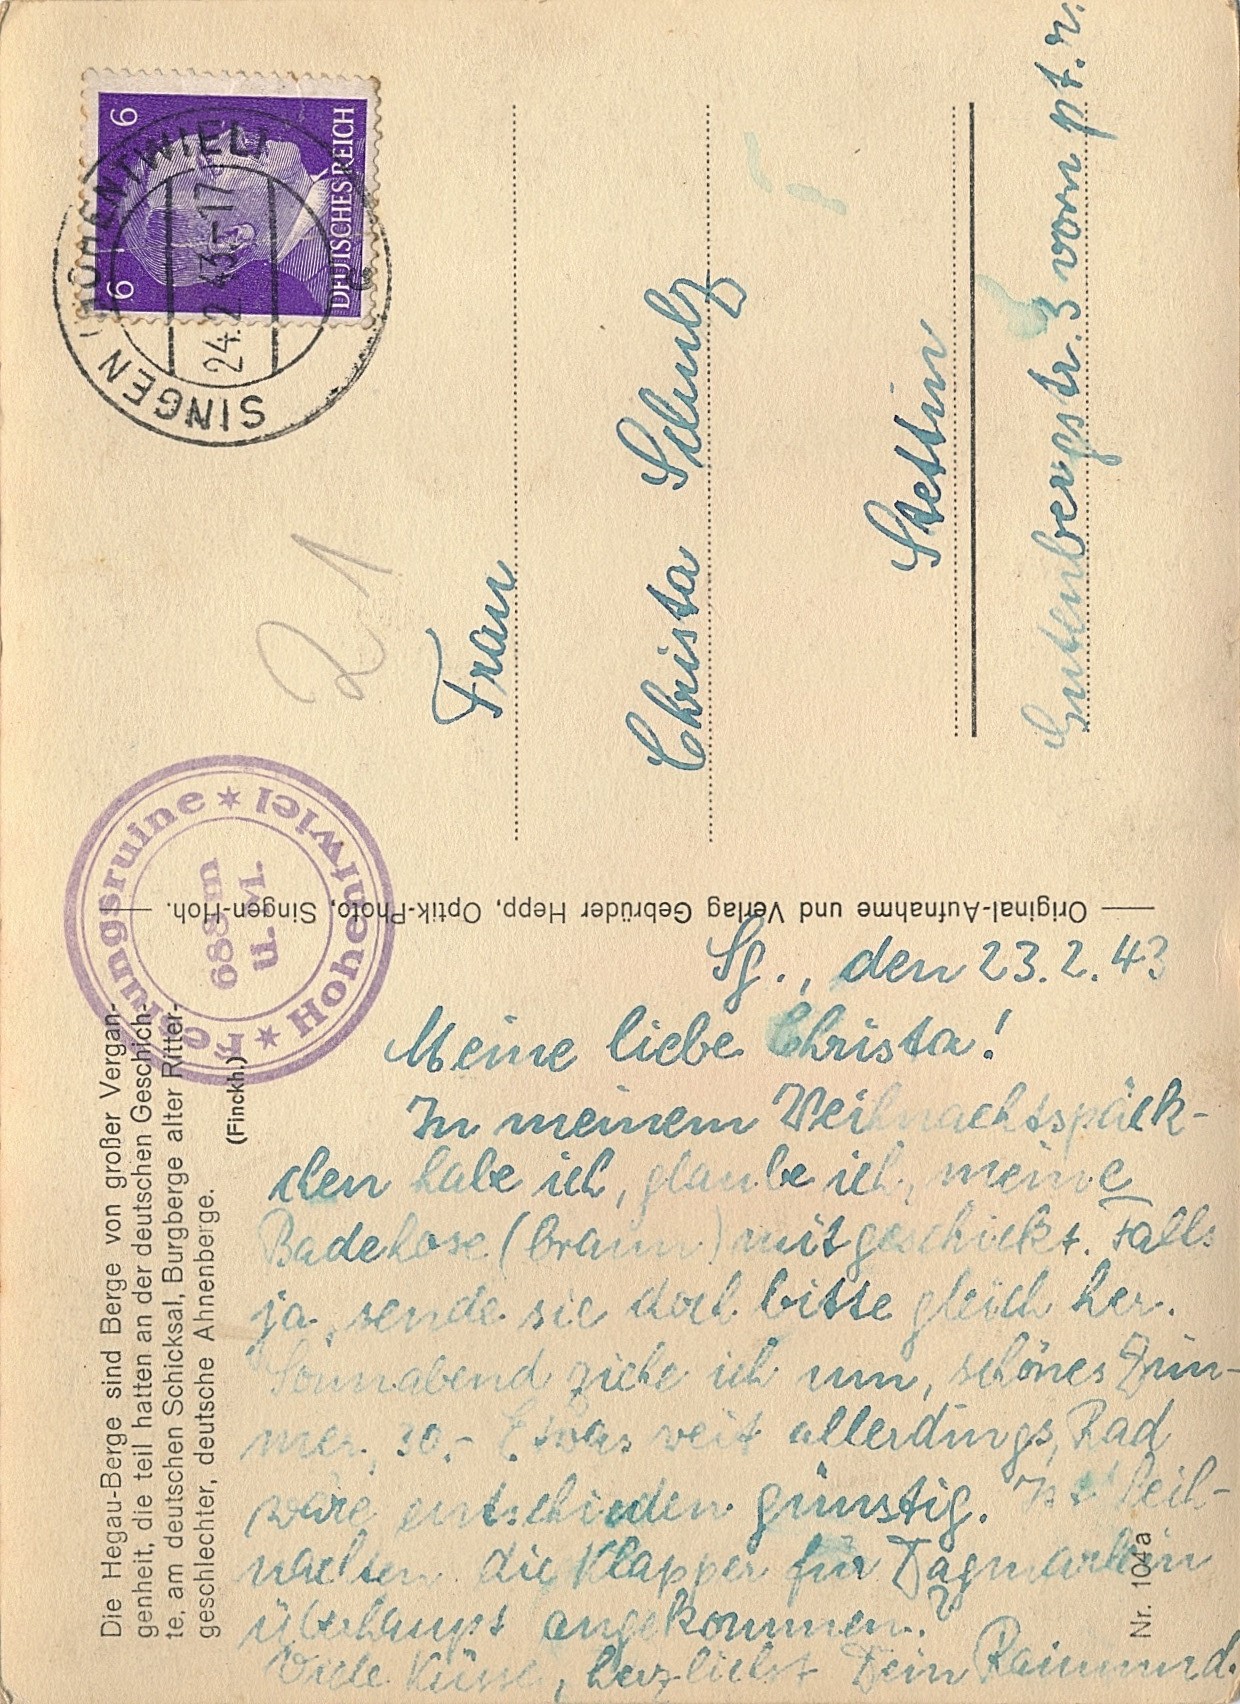 Die Hegau-Berge sind Berge von großer Vergan-
genheit, die teil hatten an der deutschen Geschich-
te, am deutschen Schicksal, Burgberge alter Ritter-
geschlechter, deutsche Ahnenberge.
(Finckh.)
Festungsruine ★ Hohentwiel ★
688 m
ü. M.
SINGEN (HOHENTWIEL)
24.2.43-17
a
6 6
DEUTSCHES REICH
21
Frau
Christa Schulz
Stettin
Gutenbergstr. 3 vorn pt. r.
Original-Aufnahme und Verlag Gebrüder Hepp, Optik-Photo, Singen-Hoh.
Sg., den 23.2.43
Meine liebe Christa!
In meinem Weihnachtspäck-
chen habe ich, glaube ich, meine
Badehose (braun) mitgeschickt. Falls
ja, sende sie doch bitte gleich her.
Sonnabend ziehe ich um, schönes Zim-
mer, 30.- Etwas weit allerdings, Rad
wäre entschieden günstig. Ist Weih-
nachten die Klapper für Dagmarlein
überhaupt angekommen?
Viele Küsse, herzlichst Dein Raimund.
Nr. 104a